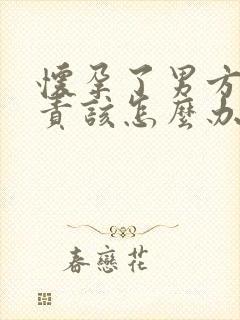 懷孕了男方
責該怎麼办
春戀花